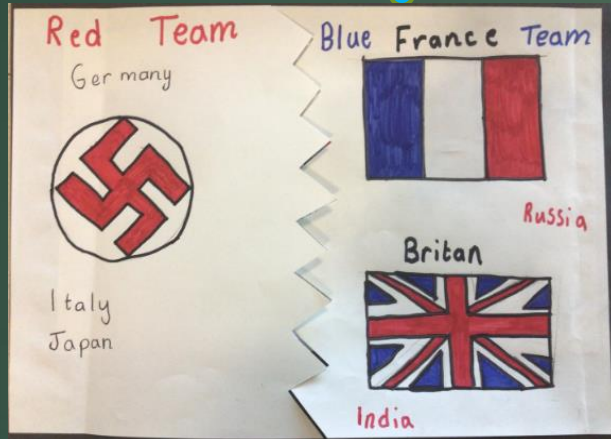 Red Team
Germany
Italy
Japan
Blue France Team
Russia
Britan
India